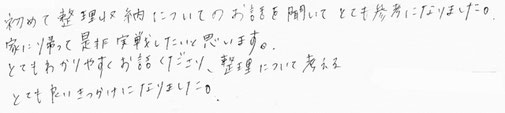 初めて整理収納についてのお話を聞いてとても参考になりました。
家に帰って是非実戦したいと思います。
とてもわかりやすくお話くださり、整理について考える
とても良いきっかけになりました。